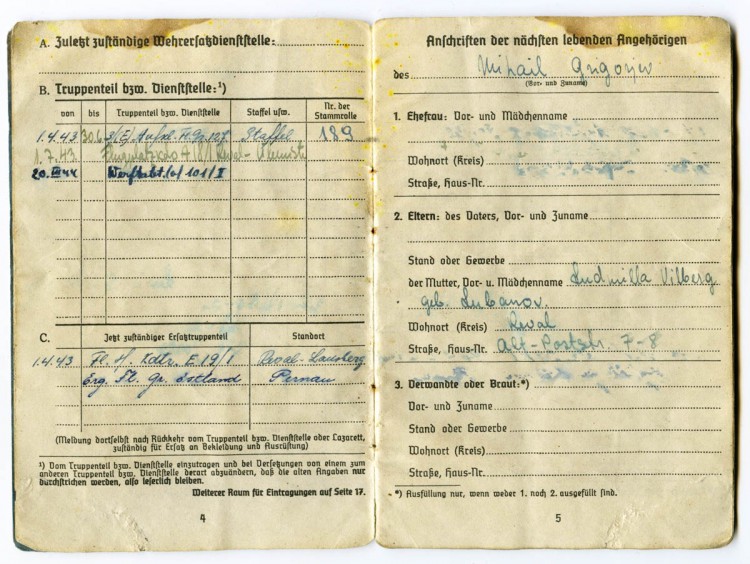 A. Zuletzt zuständige Wehrersatzdienststelle:
B. Truppenteil bzw. Dienststelle:¹)
von bis Truppenteil bzw. Dienststelle Staffel usw. Nr. der Stammrolle
1.4.43 30.6. 3/(E) Aufkl. Gr. 127 Staffel 189
1.7.43 Reval-
20. III 44 Werftabt. (o) 101/I
C. Jetzt zuständiger Ersatztruppenteil Standort
1.4.43 Fl. Kdtr. E 19/I Reval-
Erg. Fl. Gr. Ostland Pernau
(Meldung dortselbst nach Rückkehr vom Truppenteil bzw. Dienststelle oder Lazarett,
zuständig für Ersatz an Bekleidung und Ausrüstung)
¹) Vom Truppenteil bzw. Dienststelle einzutragen und bei Versetzungen von einem zum
anderen Truppenteil bzw. Dienststelle derart abzuändern, daß die alten Angaben nur
durchstrichen werden, also leserlich bleiben.
Weiterer Raum für Eintragungen auf Seite 17.
4
Anschriften der nächsten lebenden Angehörigen
des Mihail Grigorjew
(Vor- und Zuname)
1. Ehefrau: Vor- und Mädchenname
Wohnort (Kreis)
Straße, Haus-Nr.
2. Eltern: des Vaters, Vor- und Zuname
Stand oder Gewerbe
der Mutter, Vor- u. Mädchenname Ludmilla Vilberg
geb. Lubanov
Wohnort (Kreis) Reval
Straße, Haus-Nr. Alt-Poststr. 7-8
3. Verwandte oder Braut:*)
Vor- und Zuname
Stand oder Gewerbe
Wohnort (Kreis)
Straße, Haus-Nr.
*) Ausfüllung nur, wenn weder 1. noch 2. ausgefüllt sind.
5